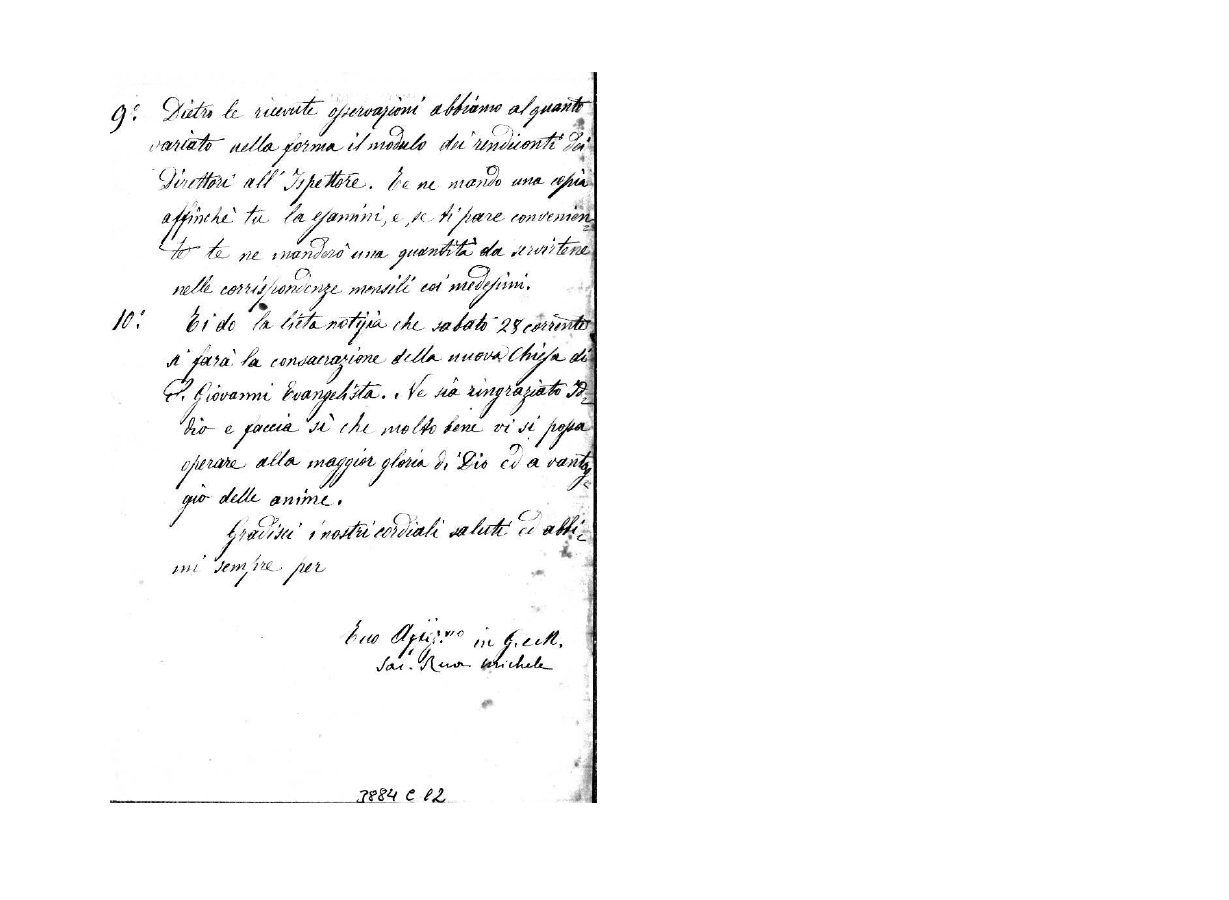 9.° Dietro le ricevute osservazioni abbiamo al quanto
variato nella forma il modulo dei rendiconti dei
Direttori all' Ispettore. Te ne mando una copia
affinchè tu la esamini, e, se ti pare convenien=
te te ne manderò una quantità da servirtene
nelle corrispondenze mensili coi medesimi.
10.° Ti do la lieta notizia che sabato 28 corrente
si farà la consacrazione della nuova Chiesa di
S. Giovanni Evangelista. Ne sia ringraziato Id=
dio e faccia sì che molto bene vi si possa
operare alla maggior gloria di Dio ed a vantag=
gio delle anime.
Gradisci i nostri cordiali saluti ed abbi=
mi sempre per
Tuo Affez.mo in G. e M.
Sac. Rua Michele
3884 C 12